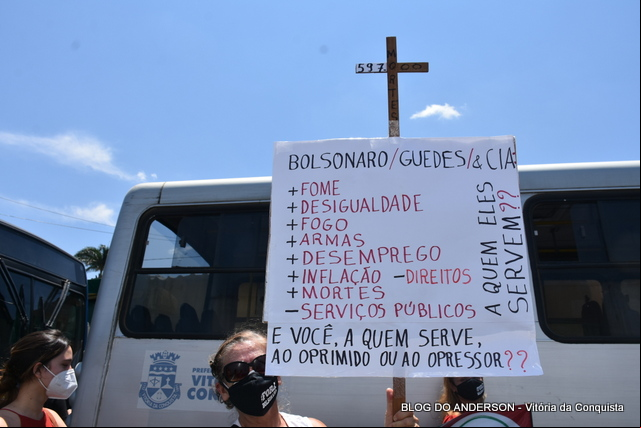 597000
MORTES
BOLSONARO/GUEDES/& CIA
+ FOME
+ DESIGUALDADE
+ FOGO
+ ARMAS
+ DESEMPREGO
+ INFLAÇÃO - DIREITOS
+ MORTES
- SERVIÇOS PÚBLICOS
A QUEM ELES
SERVEM??
E VOCÊ, A QUEM SERVE,
AO OPRIMIDO OU AO OPRESSOR??
BLOG DO ANDERSON - Vitória da Conquista